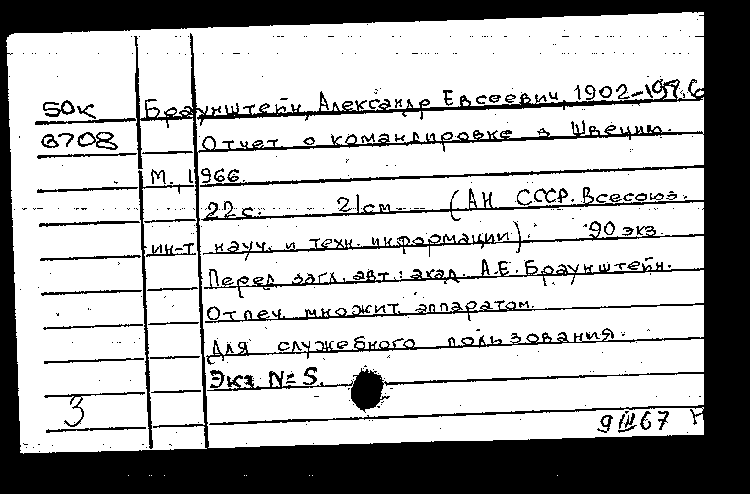 50к Браунштейн, Александр Евсеевич, 1902-197.6
6708 Отчет о командировке в Швецию.
М., 1966.
22 с. 21 см (АН СССР. Всесоюз.
ин-т науч. и техн. информации). 90 экз.
Перед загл. авт.: акад. А.Е. Браунштейн.
Отпеч. множит. аппаратом.
Для служебного пользования.
Экз. № 5.
3
9 III 67